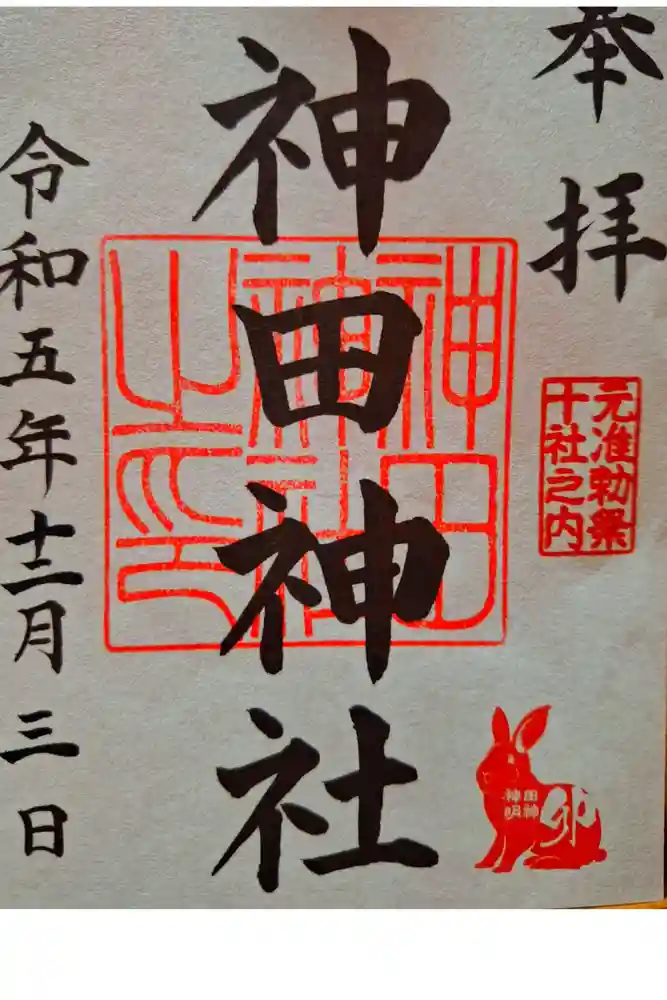 奉拝
元准勅祭
十社之内
神田
明神
卯
神田神社
神田
神社
之印
令和五年十二月三日